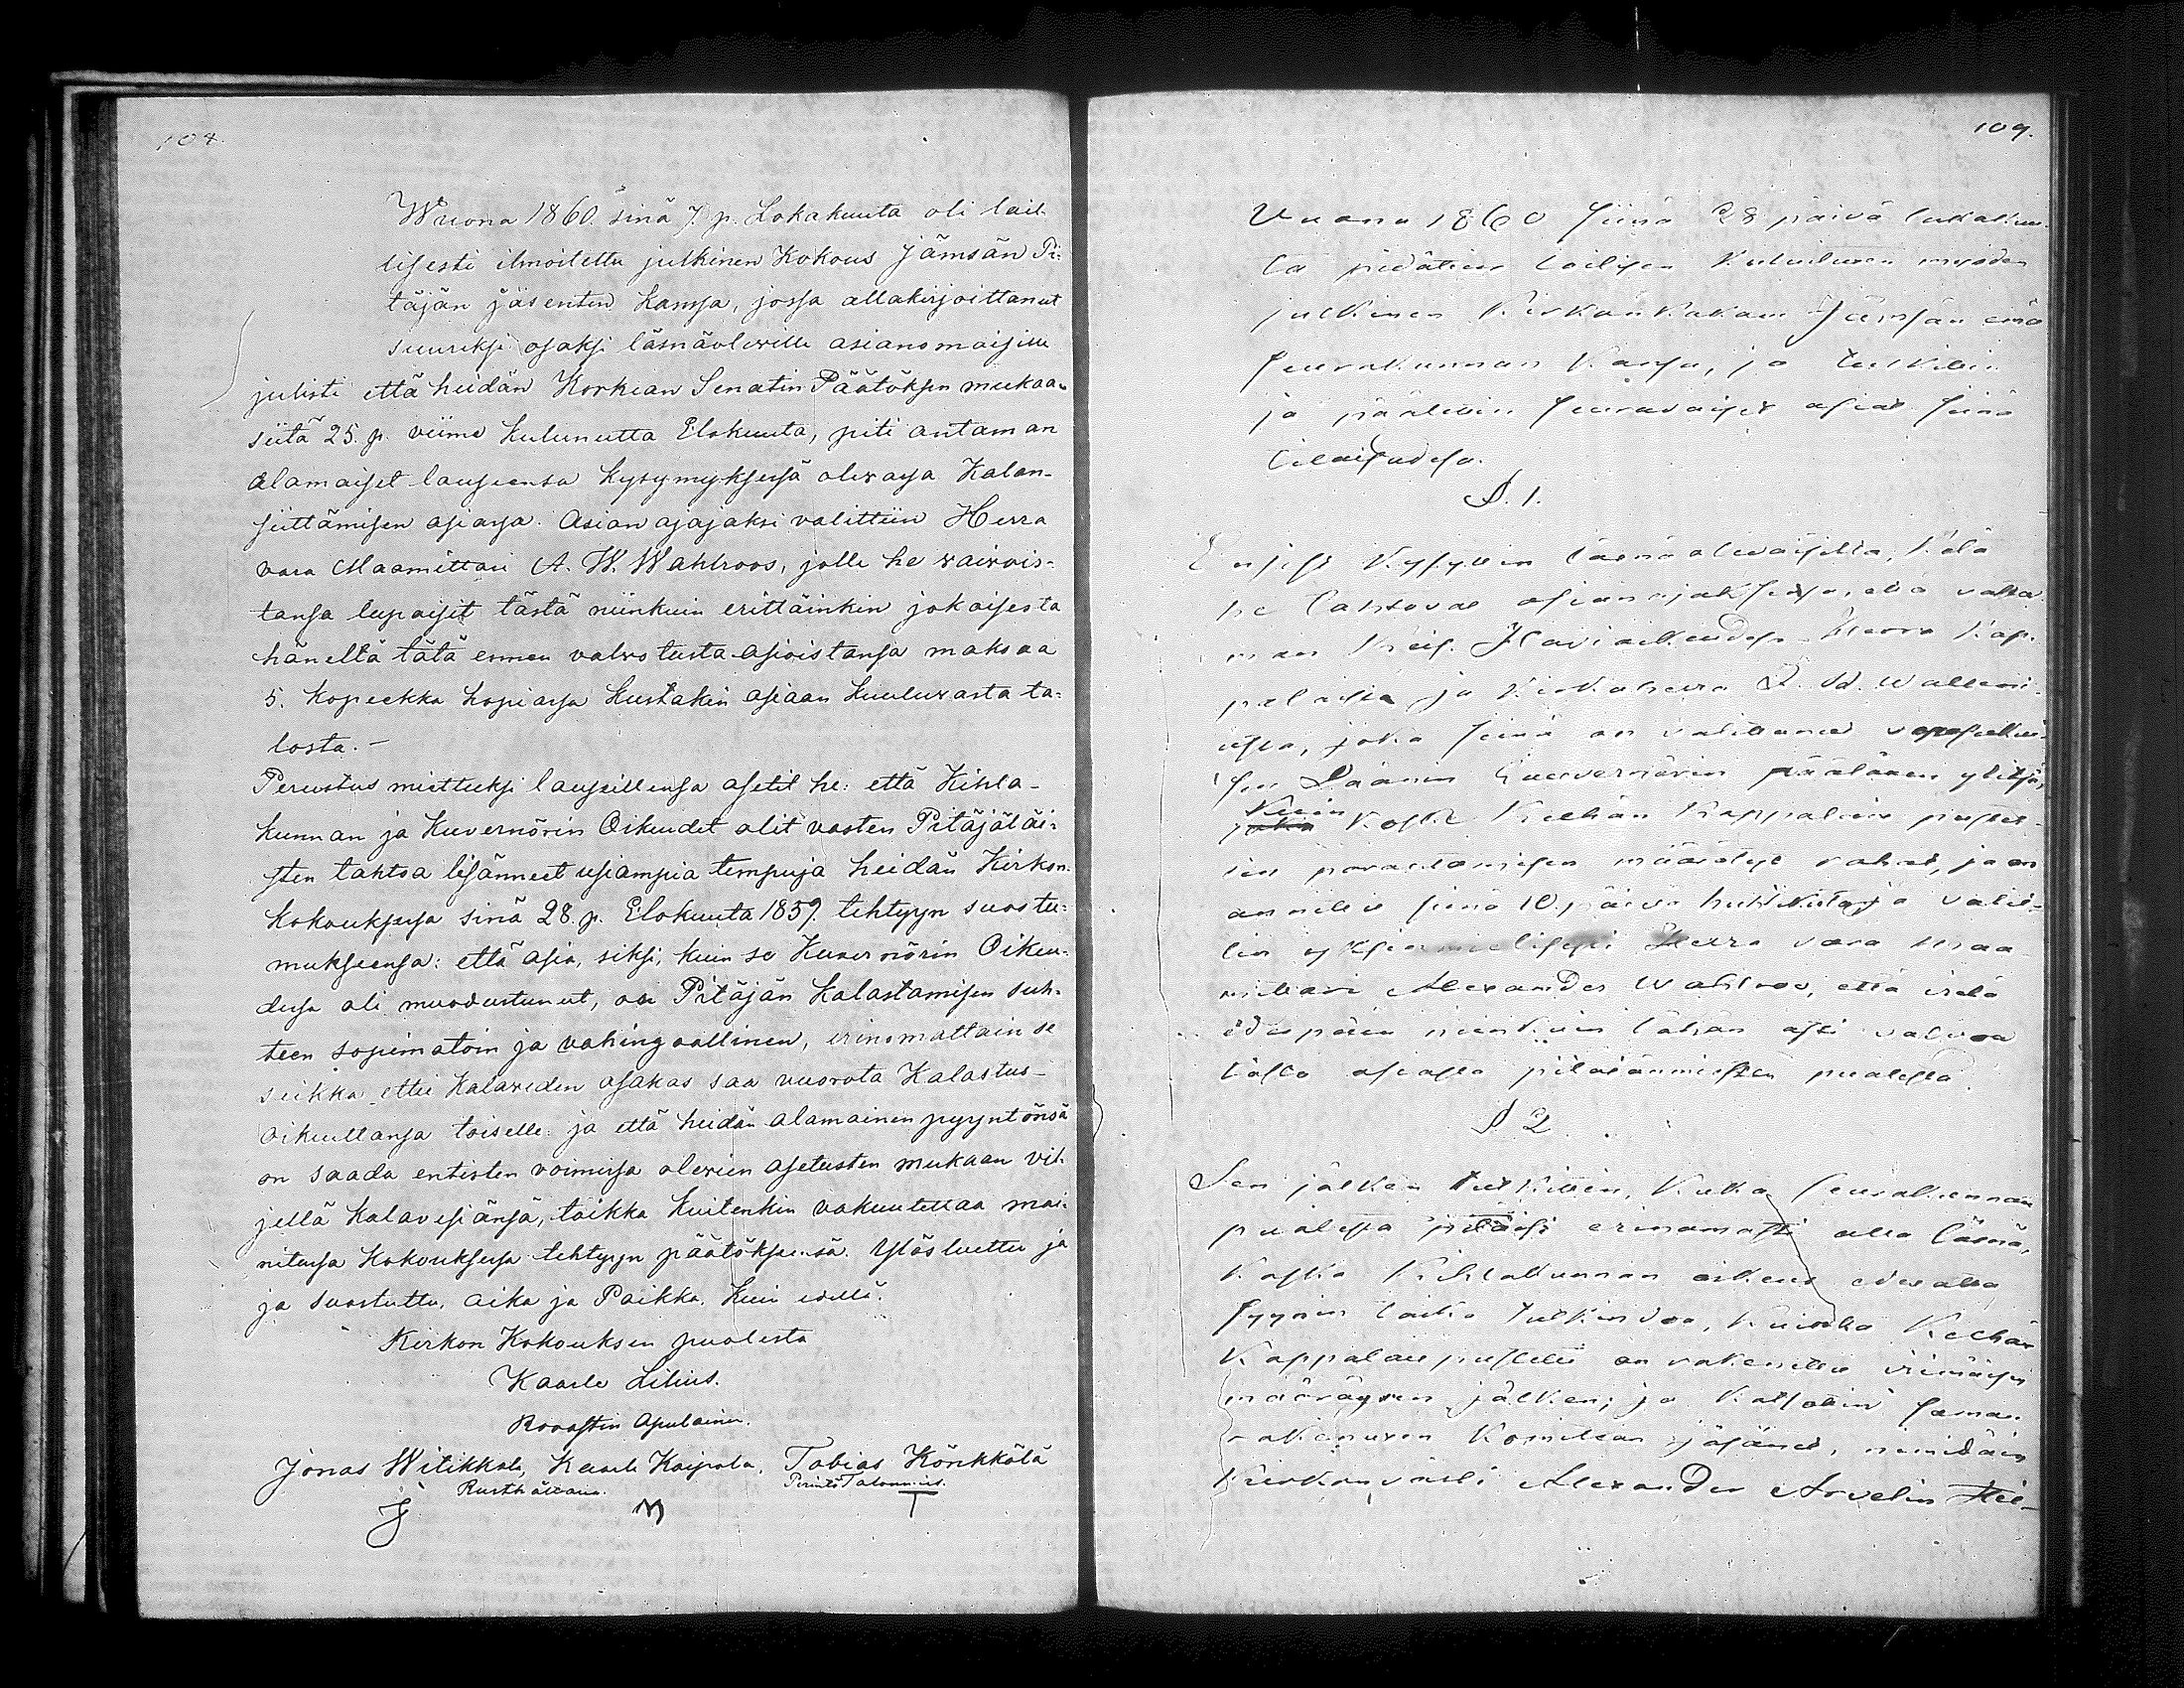 108.
Wuona 1860. sinä 7. p. Lokakuuta oli lail-
lisesti ilmoitettu julkinen Kokous Jämsän Pi-
täjän Jäsenten kanssa, jossa allakirjoittanut
suureksi osaksi läsnäoleville asianomaisille
julisti että heidän Korkian Senatin Päätöksen mukaan
siitä 25. p. viime kulunutta Elokuuta, piti antaman
alamaiset lauseensa kysymyksessä olevassa Kalan-
siittämisen asiassa. Asian ajajaksi valittiin Herra
vara Maamittari A. W. Wahlroos, jolle he vaivois-
tansa lupaisit tästä niinkuin erittäinkin jokaisesta
häneltä tätä ennen valvotusta asioistansa maksaa
5. kopeekka hopiassa kustakin asiaan kuuluvasta ta-
losta.-
Perustus mietteeksi lauseillensa asetit he: että Kihla-
kunnan ja Kuvernörin Oikeudet olit vasten Pitäjäläi-
sten tahtoa lisänneet usiampia tempuja heidän Kirkon-
kokouksessa sinä 28. p. Elokuuta 1859. tehtyyn suostu-
mukseensa: että asia, siksi, kuin se Kuvernörin Oikeu-
dessa oli muodustunut, on Pitäjän kalastamisen suh-
teen sopimatoin ja vahingollinen, erinomattain se
seikka ettei kalaveden osakas saa vuorota Kalastus-
oikeuttansa toiselle: ja että heidän alamainen pyyntönsä
on saada entisten voimissa olevien asetusten mukaan vil-
jellä kalavesiänsä, taikka kuitenkin vakuutettaa mai-
nitussa kokouksessa tehtyyn päätöksensä. Ylösluettu ja
ja suostuttu, aika ja Paikka, kuin edellä.
Kirkon Kokouksen puolesta
Kaarle Lilius.
Rovastin Apulainen.
Jonas Witikkala, Kaarle Kaipola, Tobias Könkkölä
Rusthållare. Perintö Talonmiis.
109.
Vuonna 1860 siinä 28 päivä lokakuu-
ta pidätiin laillisen kuulutuxen myöden
julkinen Kirkonkokous Jämsän emä
seurakunnan kanssa, ja tutkittiin
ja päätettiin seuraavaiset asiat siinä
tilaisuudesa.
§. 1.
Ensist kysyttiin läsnä olevaisilta, ketä
he tahtovat asianajajaksensa, valvo
man Keis. Herra Kap-
palaista ja Kirkkoherra Walleni-
usta, joka siinä on valittanut
sen Läänin Guvernörin päätöxen ylitse,
kuin
koski Kuhan Kappalais pustel-
lin parantamisen määrätyt rahat, ja on
annettu siinä 10 päivä huhtikuuta ja valit-
tin yksimielisesti Herra vara maa
mittari Alexander Wahlroos, että vielä
edespäin niinkuin tähän asti valvoa
tätä asiata pitäjänmiesten puolesta.
§ 2
Sen jälken tutkittiin, kuka seurakunnan
puolesta pitäisi erinomasti olla läsnä,
koska Kihlakunnan oikeus
syynin kautta tutkindoo, kuinka Kuhan
Kappalais pustelli on rakenettu viimäisen
määräyxen jälken; ja katsottiin saman
rakenuxen Komitean jäsänet, nimittäin
Kirkonväärti Alexander Arvelin Hei-